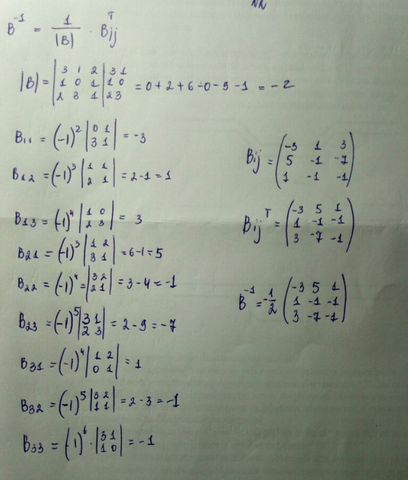 B⁻¹ = 1/|B| · Bijᵀ
|B| = |3 1 2; 1 0 1; 2 3 1| 3 1; 1 0; 2 3 = 0 + 2 + 6 - 0 - 9 - 1 = -2
B₁₁ = (-1)² |0 1; 3 1| = -3
B₁₂ = (-1)³ |1 1; 2 1| = 2-1 = 1
B₁₃ = (-1)⁴ |1 0; 2 3| = 3
B₂₁ = (-1)³ |1 2; 3 1| = 6-1 = 5
B₂₂ = (-1)⁴ = |3 2; 2 1| = 3-4 = -1
B₂₃ = (-1)⁵ |3 1; 2 3| = 2-9 = -7
B₃₁ = (-1)⁴ |1 2; 0 1| = 1
B₃₂ = (-1)⁵ |3 2; 1 1| = 2-3 = -1
B₃₃ = (-1)⁶ · |3 1; 1 0| = -1
Bij = (-3 1 3; 5 -1 -7; 1 -1 -1)
Bijᵀ = (-3 5 1; 1 -1 -1; 3 -7 -1)
B⁻¹ = -1/2 (-3 5 1; 1 -1 -1; 3 -7 -1)